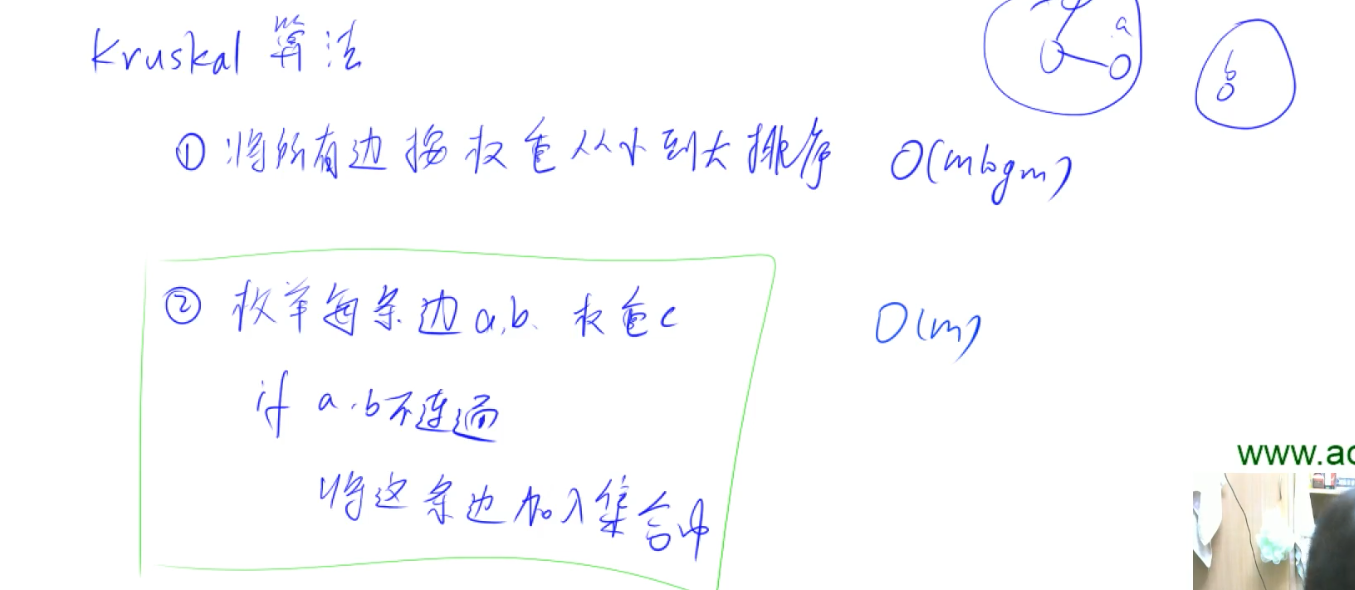 Kruskal 算法
a
b
① 将所有边按权重从小到大排序 O(mlogm)
② 枚举每条边a,b、权重c O(m)
if a.b不连通
将这条边加入集合中
www.ac